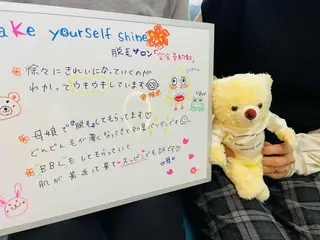 ake yourself shine
脱毛サロン「完全予約制」
徐々にきれいになっていくのが
わかってウキウキしています
母娘で「脱毛」してもらってます♡
どんどん毛が薄くなってきて効果バツグンです
BBLもしてもらっていて
肌が若返って来てスッピンでもOKです♡